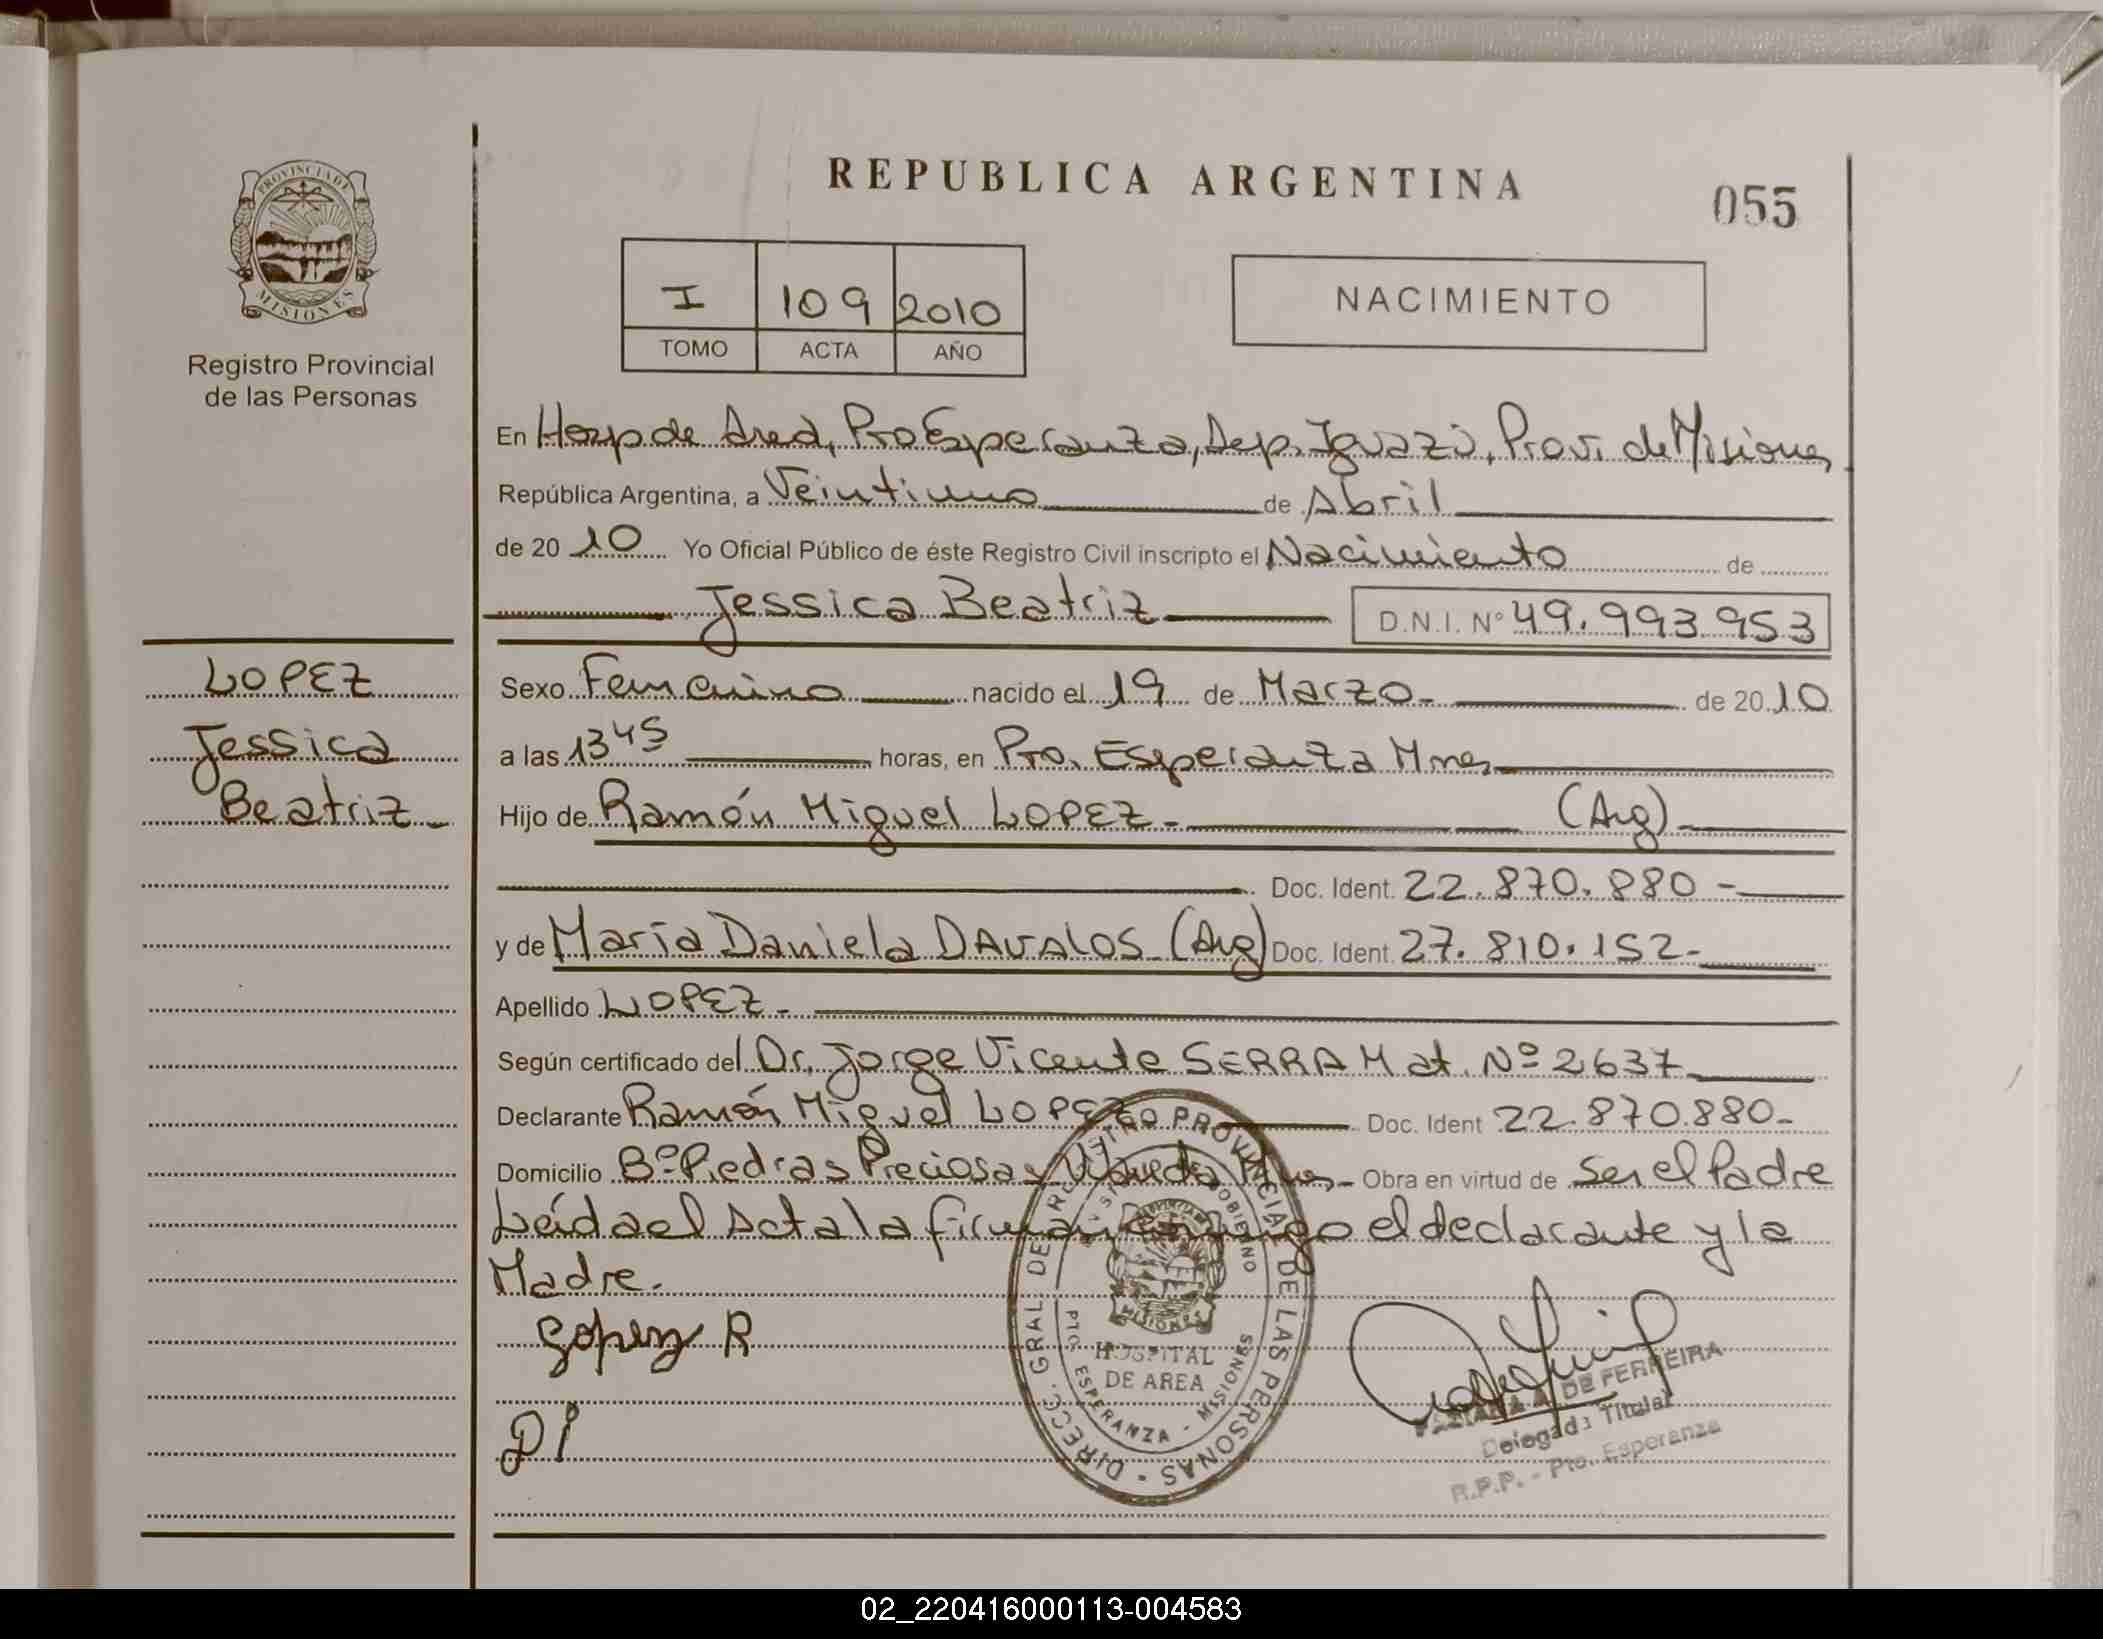 PROVINCIA DE
MISIONES
Registro Provincial
de las Personas
LOPEZ
Jessica
Beatriz -
REPUBLICA ARGENTINA
055
I 109 2010
TOMO ACTA AÑO
NACIMIENTO
En Hosp de Area, Pto Esperanza, Dep. Iguazú, Prov. de Misiones
República Argentina, a Veintiuno de Abril
de 20 10 Yo Oficial Público de éste Registro Civil inscripto el Nacimiento de
Jessica Beatriz D.N.I. Nº 49.993.953
Sexo Femenino nacido el 19 de Marzo - de 20 10
a las 13 45 horas, en Pto. Esperanza Mnes
Hijo de Ramón Miguel LOPEZ - (Arg)
Doc. Ident. 22.870.880 -
y de María Daniela DAVALOS (Arg) Doc. Ident. 27.810.152 -
Apellido LOPEZ -
Según certificado del Dr. Jorge Vicente SERRA Mat. Nº 2637
Declarante Ramón Miguel LOPEZ Doc. Ident 22.870.880 -
Domicilio Bº Piedras Preciosas Wanda Mnes - Obra en virtud de ser el Padre
Leída el Acta la firman conmigo el declarante y la
Madre.
Lopez R
DI
DIRECC. GRAL DE REGISTRO PROVINCIAL DE LAS PERSONAS
MISIONES
HOSPITAL
DE AREA
PTO. ESPERANZA - MISIONES
DE FERREIRA
Delegada Titular
R.P.P. - Pto. Esperanza
02_220416000113-004583